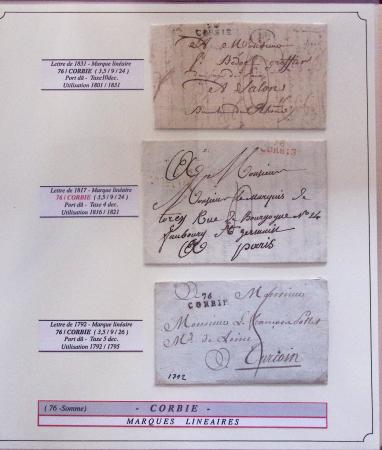 Lettre de 1831 - Marque linéaire
76 / CORBIE ( 3,5 / 9 / 24 )
Port dû - Taxe10dec.
Utilisation 1801 / 1831
76
CORBIE
A Monsieur
A Salon
Lettre de 1817 - Marque linéaire
76 / CORBIE ( 3,5 / 9 / 24 )
Port dû - Taxe 4 dec.
Utilisation 1816 / 1821
76
CORBIE
A Monsieur
Monsieur le Marquis de
torcy Rue de Bourgogne n° 24
faubourg St germain
A paris
Lettre de 1792 - Marque linéaire
76 / CORBIE ( 3,5 / 9 / 26 )
Port dû - Taxe 5 dec.
Utilisation 1792 / 1795
76
CORBIE
Monsieur
Monsieur
1792
( 76 -Somme)
- CORBIE -
MARQUES LINEAIRES